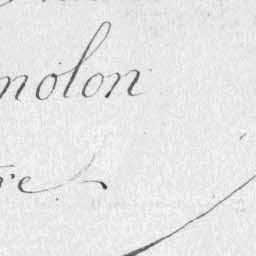 molon
re